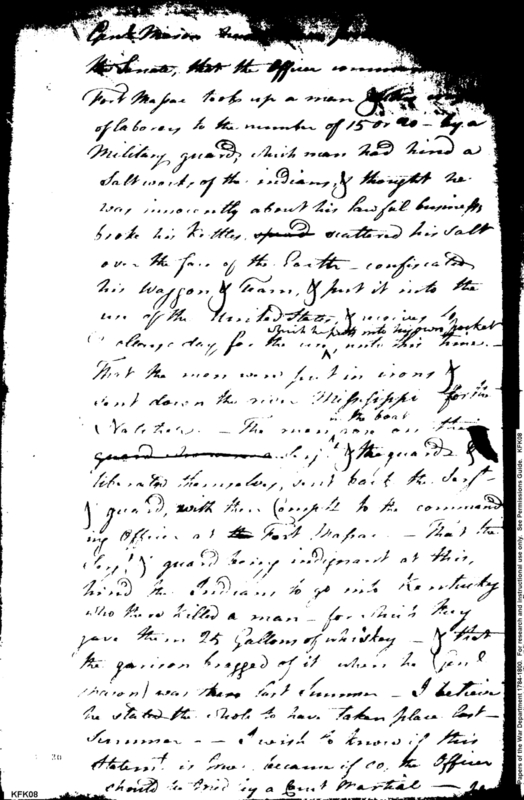 Genl Mason
the Senate, that the Officer
Fort Massac took up a man
of laborers to the number of 15 or 20 – by a
Military guard, which man had hired a
Salt works, of the indians, & thought he
was innocently about his lawful business
broke his Kettles, spread scattered his Salt
over the face of the Earth – confiscated
his Waggon & Team, & put it into the
use of the United States, & receives
which he puts into his own pocket
always day, for the use, unto this time. –
That the men were put in irons &
sent down the river Mississippi for the
Natchez. – The men
in the boat
guard & the guard &
liberated themselves, sent back the Serjt
& guard, with their Complts to the command
ing Officer at the Fort Massac. – That the
Serjt & guard being indignant at this,
hired the Indians to go into Kentuckey
who there killed a man – for which they
gave them 25 Gallons of whiskey – & that
the garrison bragged of it when he (Genl
Mason) was there last Summer – I believe
he stated the whole to have taken place last
Summer – – I wish to know if this
Statemt is true, because if so, the Officer
should be tried by a Court Martial –
30
KFK08
Papers of the War Department 1784-1800. For research and instructional use only. See Permissions Guide. KFK08